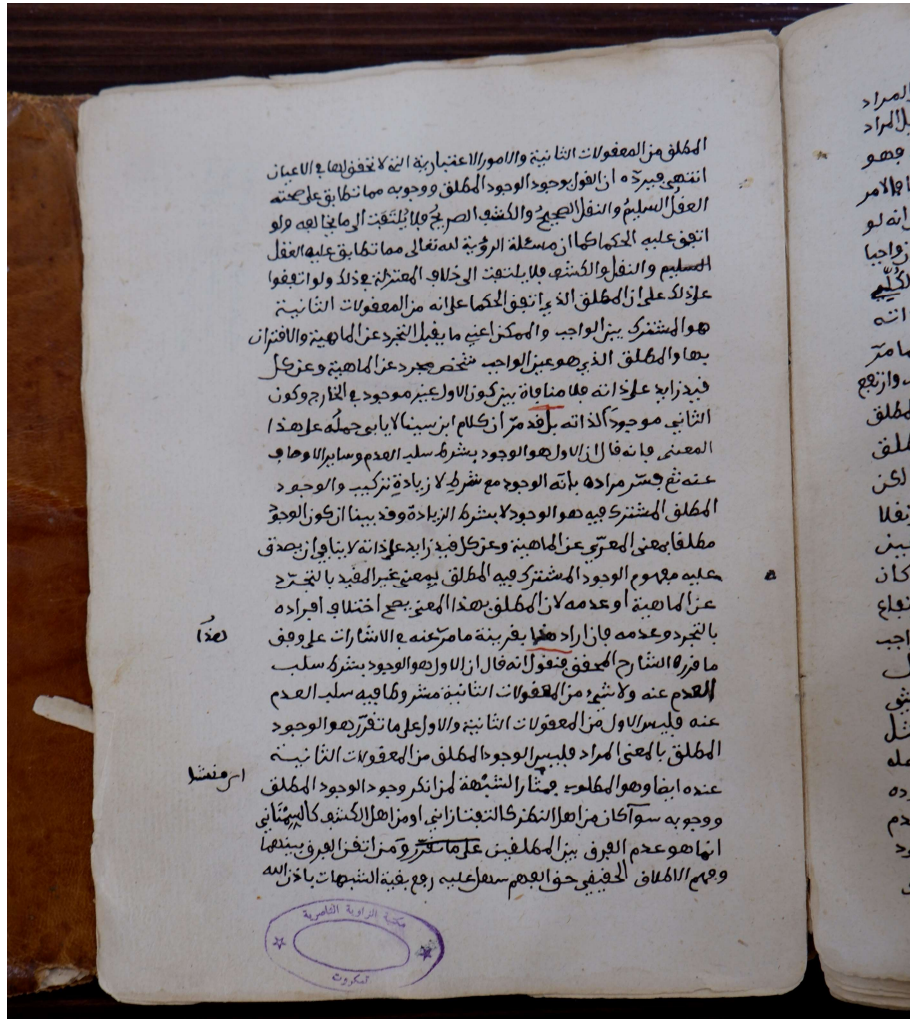 المطلق من المعقولات الثانية والامور الاعتبارية التى لا تحقق لها في الاعيان
انتهى فيردّه ان القول بوجود الوجود المطلق ووجوبه مما تطابق على صحته
العقل السليم والنقل الصحيح والكشف الصريح فلا يلتفت الى ما يخالفه ولو
اتفق عليه الحكما كما ان مسئلة الرؤية لله تعالى مما تطابق عليه العقل
السليم والنقل والكشف فلا يلتفت الى خلاف المعتزلة في ذلك ولو اتفقوا
على ذلك على ان المطلق الذي اتفق الحكما على انه من المعقولات الثانية
هو المشترك بين الواجب والممكن اعني ما يقبل التجرد عن الماهية والاقتران
بها والمطلق الذي هو عين الواجب شخص مجرد عن الماهية وعن كل
قيد زايد على ذاته فلا منافاة بين كون الاول غير موجود في الخارج وكون
الثاني موجودا لذاته بل قد مرّ ان كلام ابن سينا لا يابى حمله على هذا
المعنى فانه قال ان الاول هو الوجود بشرط سلب العدم وساير الاوصاف
عنه ثم فسّر مراده بأنه الوجود مع شرط لا زيادة تركيب والوجود
المطلق المشترك فيه هو الوجود لا بشرط الزيادة وقد بينا ان كون الوجود
مطلقا بمعنى المعرّى عن الماهية وعن كل قيد زايد على ذاته لا ينافي ان يصدق
عليه مفهوم الوجود المشترك فيه المطلق بمعنى غير المقيد بالتجرّد
عن الماهية أو عدمه لان المطلق بهذا المعنى يصح اختلاف افراده
بالتجرد وعدمه فان اراد هذا بقرينة ما مر عنه في الاشارات على وفق
هذا
ما قرره الشارح المحقق فنقول انه قال ان الاول هو الوجود بشرط سلب
العدم عنه ولا شيء من المعقولات الثانية مشروطا فيه سلب العدم
عنه فليس الاول من المعقولات الثانية والاول على ما تقرر هو الوجود
المطلق بالمعنى المراد فليس الوجود المطلق من المعقولات الثانية
عنده ايضا وهو المطلوب فمثار الشبهة لمن انكر وجود الوجود المطلق
ووجوبه سوآ كان من اهل النظر كالتفتازاني او من اهل الكشف كالسمناني
انما هو عدم الفرق بين المطلقين على ما تقرر ومن اتقن الفرق بينهما
وفهم الاطلاق الحقيقي حق الفهم سهل عليه رفع بقية الشبهات باذن الله
مكتبة الزاوية الناصرية
تمكروت
المراد
فهو
انه لو
واجبا
انه
المطلق
لكن
كان